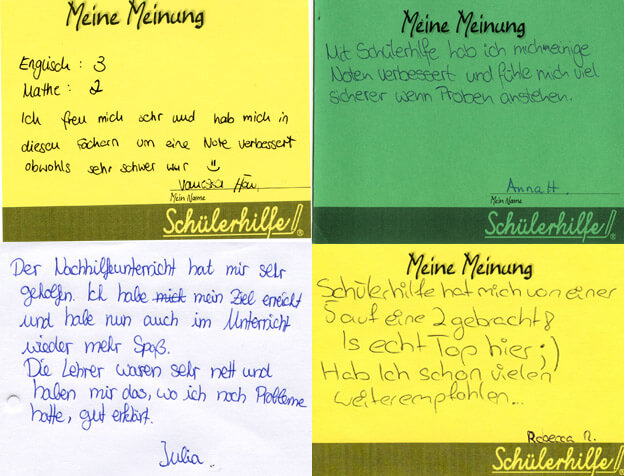 Meine Meinung
Englisch : 3
Mathe : 2
Ich freu mich sehr und hab mich in
diesen Fächern um eine Note verbessert
obwohls sehr schwer war :)
Vanessa
Mein Name
Schülerhilfe!®
Meine Meinung
Mit Schülerhilfe hab ich mich meinige
Noten verbessert und fühle mich viel
sicherer wenn Proben anstehen.
Anna H.
Mein Name
Schülerhilfe!®
Der Nachhilfeunterricht hat mir sehr
geholfen. Ich habe mich mein Ziel erreicht
und habe nun auch im Unterricht
wieder mehr Spaß.
Die Lehrer waren sehr nett und
haben mir das, wo ich noch Probleme
hatte, gut erklärt.
Julia.
Meine Meinung
Schülerhilfe hat mich von einer
5 auf eine 2 gebracht!
Is echt Top hier ;)
Hab Ich schon vielen
weiterempfohlen...
Rebecca R.
Schülerhilfe!®